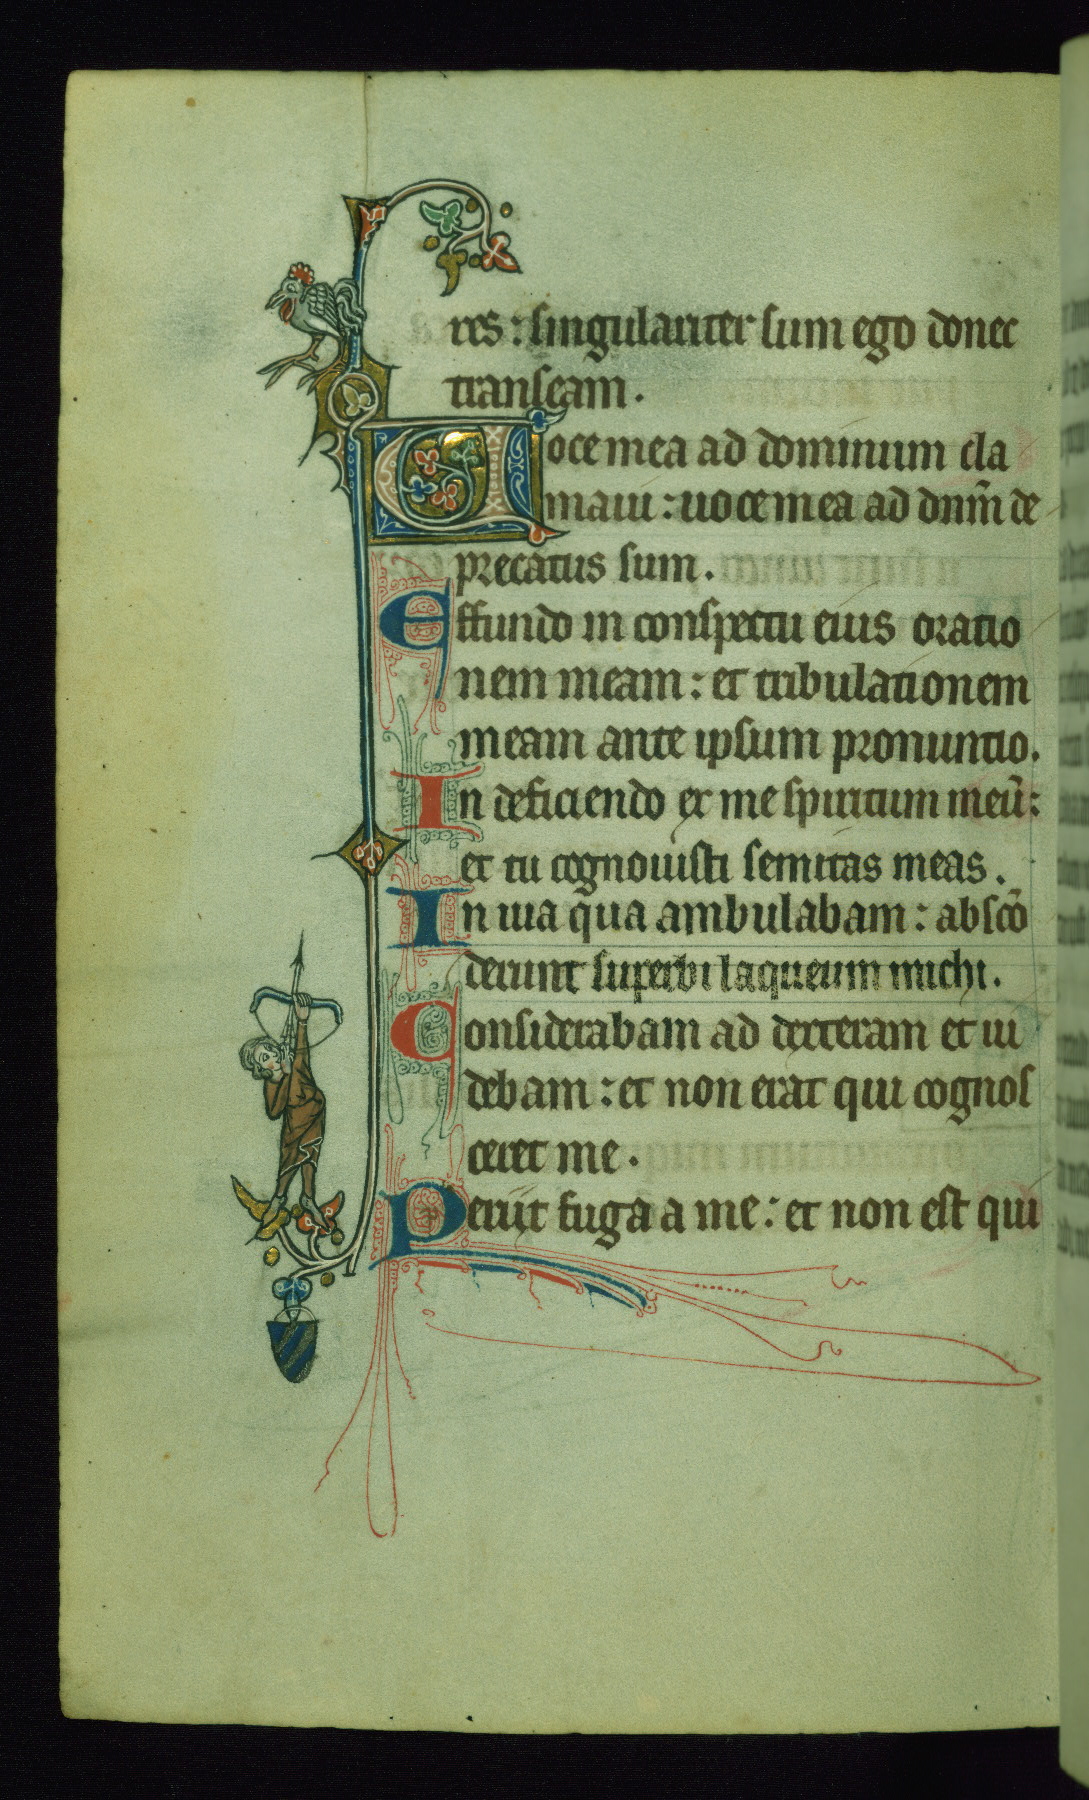 res : singulariter sum ego donec
transeam .
Uoce mea ad dominum cla
maui : uoce mea ad dnm̄ de
precatus sum .
Effundo in conspectu eius oratio
nem meam : et tribulationem
meam ante ipsum pronuntio .
In deficiendo ex me spiritum meū :
et tu cognouisti semitas meas .
In uia qua ambulabam : abscō
derunt superbi laqueum michi .
Considerabam ad dexteram et ui
debam : et non erat qui cognos
ceret me .
Periit fuga a me : et non est qui